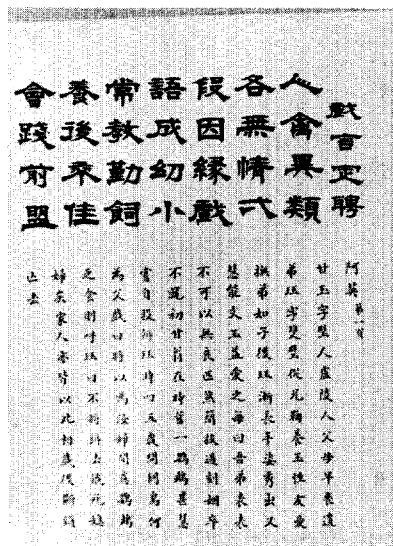 戲言定聘
人禽異類
各無情弍
假因緣戲
語成幼小
常教勤飼
養後來佳
會踐前盟
阿英 第一頁
甘玉字璧人廬陵人父母早喪遺
弟珏字雙璧從兄鞠養玉性友愛
撫弟如子後珏漸長丰姿秀出又
慧能文玉益愛之每曰吾弟表表
不可以無良匹然簡拔過刻姻卒
不就初甘翁在時蓄一鸚鵡甚慧
嘗自投餌珏時四五歲問飼鳥何
為父戲曰將以為汝婦間慮鸚鵡
乏食則呼珏曰不將餌去餓死媳
婦矣家人亦皆以此相戲後斷鎖
亡去